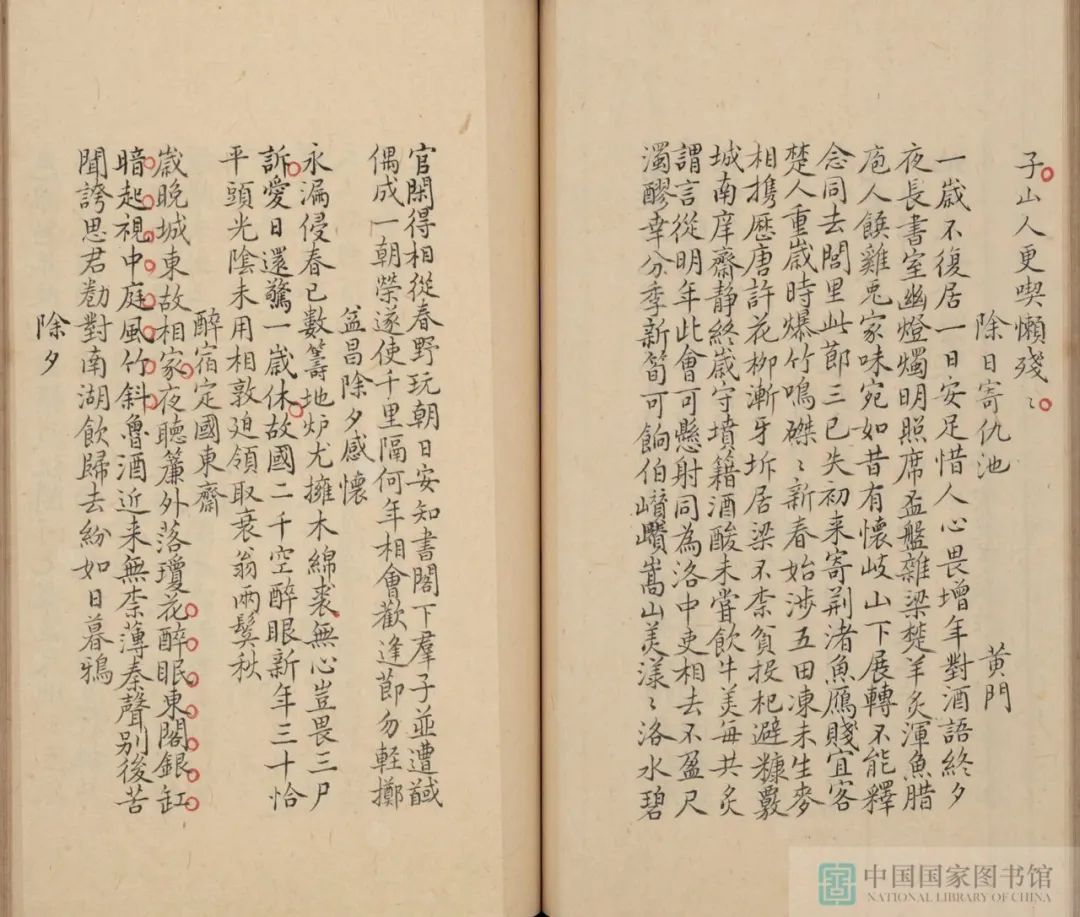 子山人更喫懶殘〻
除日寄仇池
黃門
一歲不復居一日安足惜人心畏增年對酒語終夕
夜長書室幽燈燭明照席盃盤雜梁楚羊炙渾魚腊
庖人饌雞兎家味宛如昔有懷岐山下展轉不能釋
念同去閭里此莭三已失初来寄荆渚魚鴈賤宜客
楚人重歲時爆竹鳴磔〻新春始涉五田凍未生麥
相携歷唐許花柳漸牙坼居梁不柰貧投杞避糠覈
城南庠齋静終歲守墳籍酒酸未嘗飲牛美每共炙
謂言從明年此會可懸射同為洛中吏相去不盈尺
濁醪幸分季新筍可餉伯巑巑嵩山美漾〻洛水碧
官閑得相從春野玩朝日安知書閣下羣子並遭馘
偶成一朝榮遂使千里隔何年相會歡逢節勿輕擲
益昌除夕感懷
永漏侵春已數籌地炉尤擁木綿裘無心豈畏三尸
訴愛日還驚一歲休故國二千空醉眼新年三十恰
平頭光陰未用相敦迫領取衰翁兩鬢秋
醉宿定國東齋
歲晚城東故相家夜聽簾外落瓊花醉眠東閣銀缸
暗起視中庭風竹斜魯酒近来無柰薄秦聲别後苦
聞誇思君勸對南湖飲歸去紛如日暮鴉
除夕
中国国家图书馆
NATIONAL LIBRARY OF CHINA